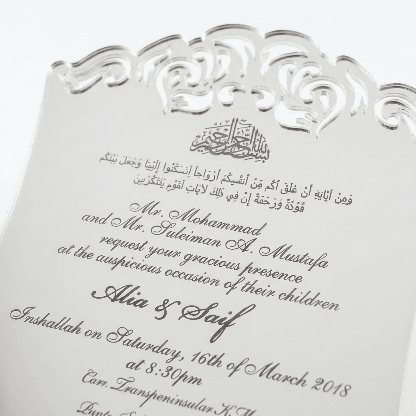 بسم الله الرحمن الرحيم
وَمِنْ آيَاتِهِ أَنْ خَلَقَ لَكُم مِّنْ أَنفُسِكُمْ أَزْوَاجاً لِّتَسْكُنُوا إِلَيْهَا وَجَعَلَ بَيْنَكُم
مَّوَدَّةً وَرَحْمَةً إِنَّ فِي ذَلِكَ لَآيَاتٍ لِّقَوْمٍ يَتَفَكَّرُونَ
Mr. Mohammad
and Mr. Suleiman A. Mustafa
request your gracious presence
at the auspicious occasion of their children
Alia & Saif
Inshallah on Saturday, 16th of March 2018
at 8:30pm
Carr. Transpeninsular K.M